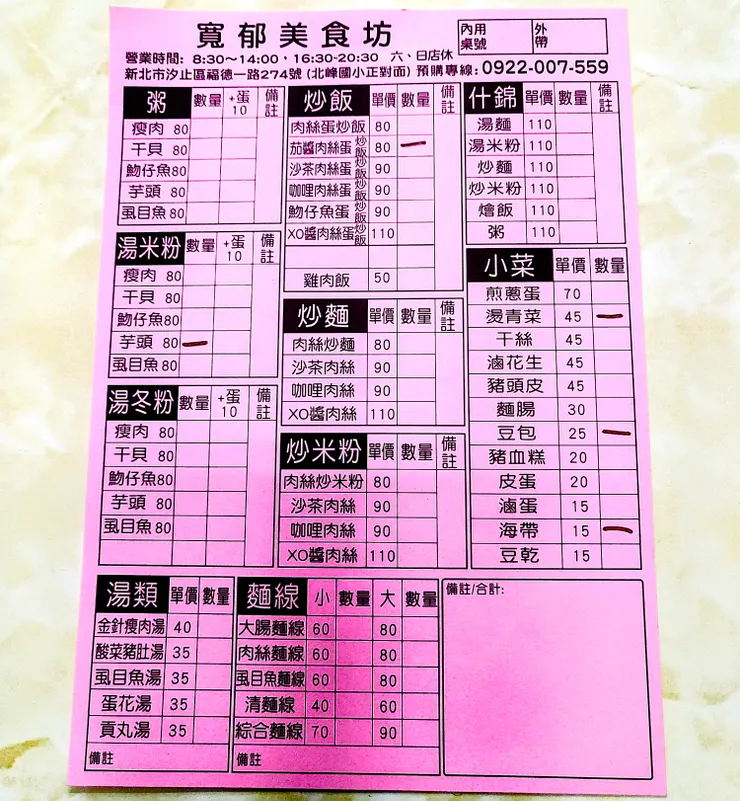 寬郁美食坊
內用桌號 外帶
營業時間: 8:30~14:00，16:30-20:30 六、日店休
新北市汐止區福德一路274號 (北峰國小正對面) 預購專線: 0922-007-559
粥 數量 +蛋10 備註
瘦肉 80
干貝 80
魩仔魚 80
芋頭 80
虱目魚 80
湯米粉 數量 +蛋10 備註
瘦肉 80
干貝 80
魩仔魚 80
芋頭 80 一
虱目魚 80
湯冬粉 數量 +蛋10 備註
瘦肉 80
干貝 80
魩仔魚 80
芋頭 80
虱目魚 80
炒飯 單價 數量 備註
肉絲蛋炒飯 80
茄醬肉絲蛋炒飯 80 一
沙茶肉絲蛋炒飯 90
咖哩肉絲蛋炒飯 90
魩仔魚蛋炒飯 90
XO醬肉絲蛋炒飯 110
雞肉飯 50
炒麵 單價 數量 備註
肉絲炒麵 80
沙茶肉絲 90
咖哩肉絲 90
XO醬肉絲 110
炒米粉 單價 數量 備註
肉絲炒米粉 80
沙茶肉絲 90
咖哩肉絲 90
XO醬肉絲 110
什錦 單價 數量 備註
湯麵 110
湯米粉 110
炒麵 110
炒米粉 110
燴飯 110
粥 110
小菜 單價 數量
煎蔥蛋 70
燙青菜 45 一
干絲 45
滷花生 45
豬頭皮 45
麵腸 30
豆包 25 一
豬血糕 20
皮蛋 20
滷蛋 15
海帶 15 一
豆乾 15
湯類 單價 數量
金針瘦肉湯 40
酸菜豬肚湯 35
虱目魚湯 35
蛋花湯 35
貢丸湯 35
備註
麵線 小 數量 大 數量
大腸麵線 60 80
肉絲麵線 60 80
虱目魚麵線 60 80
清麵線 40 60
綜合麵線 70 90
備註
備註/合計: